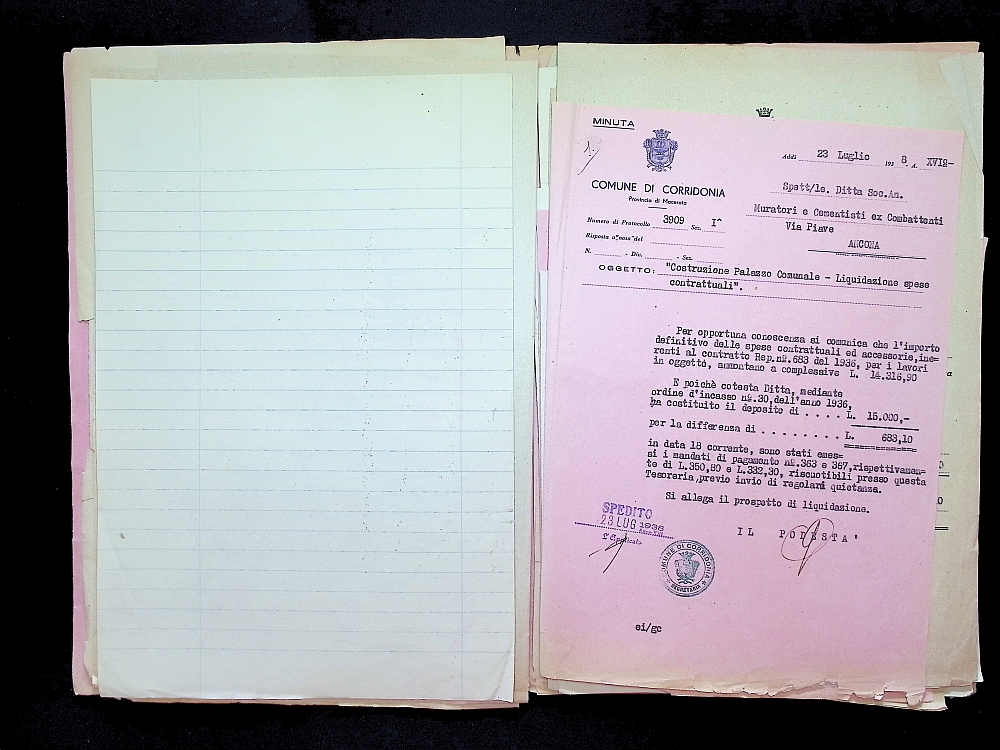 MINUTA
Addì 23 Luglio 1938. A. XVI°-
COMUNE DI CORRIDONIA
Provincia di Macerata
Spett/le. Ditta Soc.An.
Muratori e Cementisti ex Combattenti
Via Piave
ANCONA
Numero di Protocollo 3909 Sez. I^
Risposta a nota del
N. - Div. - Sez.
OGGETTO: "Costruzione Palazzo Comunale - Liquidazione spese
contrattuali".
Per opportuna conoscenza si comunica che l'importo
definitivo delle spese contrattuali ed accessorie, ine=
renti al contratto Rep.n°.683 del 1936, per i lavori
in oggetto, ammontano a complessive L. 14.316,90
E poichè cotesta Ditta, mediante
ordine d'incasso n°.30, dell'anno 1936,
ha costituito il deposito di . . . . L. 15.000,-
per la differenza di . . . . . . . . L. 683,10
in data 18 corrente, sono stati emes=
si i mandati di pagamento n°.363 e 367, rispettivamen=
te di L.350,80 e L.332,30, riscuotibili presso questa
Tesoreria, previo invio di regolari quietanza.
Si allega il prospetto di liquidazione.
SPEDITO
23 LUG 1938
L'Applicato
IL PODESTA'
COMUNE DI CORRIDONIA
SEGRETERIA
ei/gc